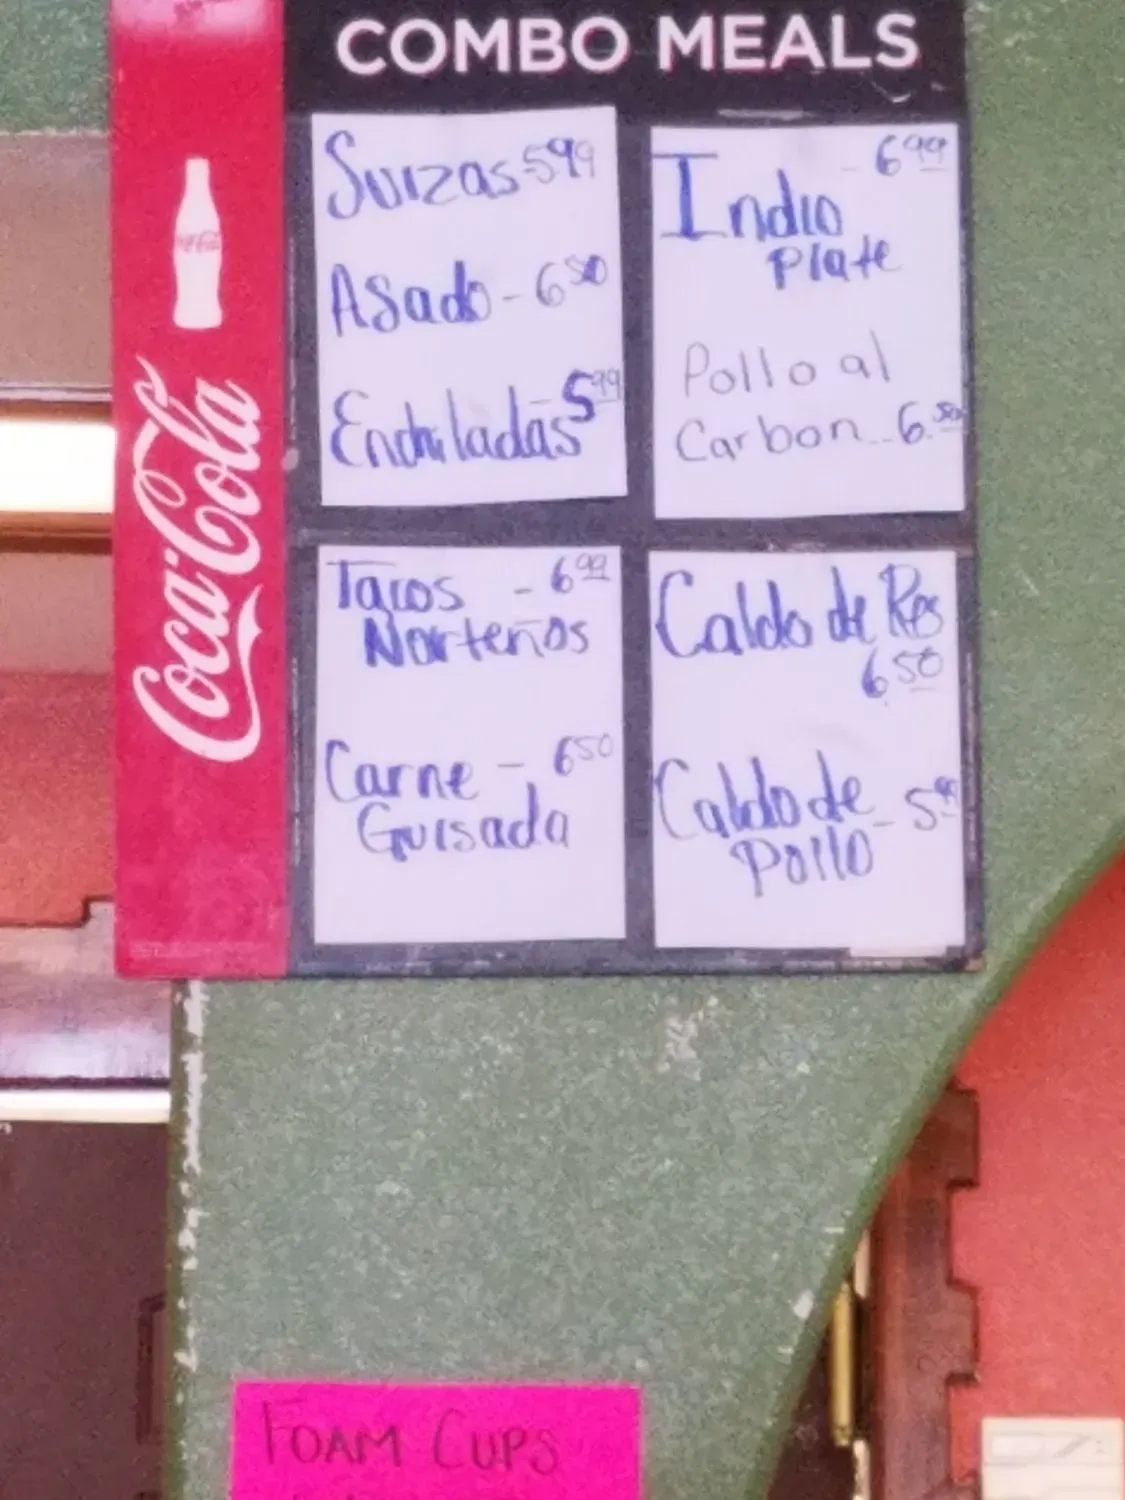 COMBO MEALS
Suizas-5.99
Asado - 6.50
Enchiladas - 5.99
Indio - 6.99
Plate
Pollo al
Carbon..6.50
Tacos - 6.99
Norteños
Carne - 6.50
Guisada
Caldo de Res
6.50
Caldo de - 5.99
Pollo
Coca-Cola
FOAM CUPS